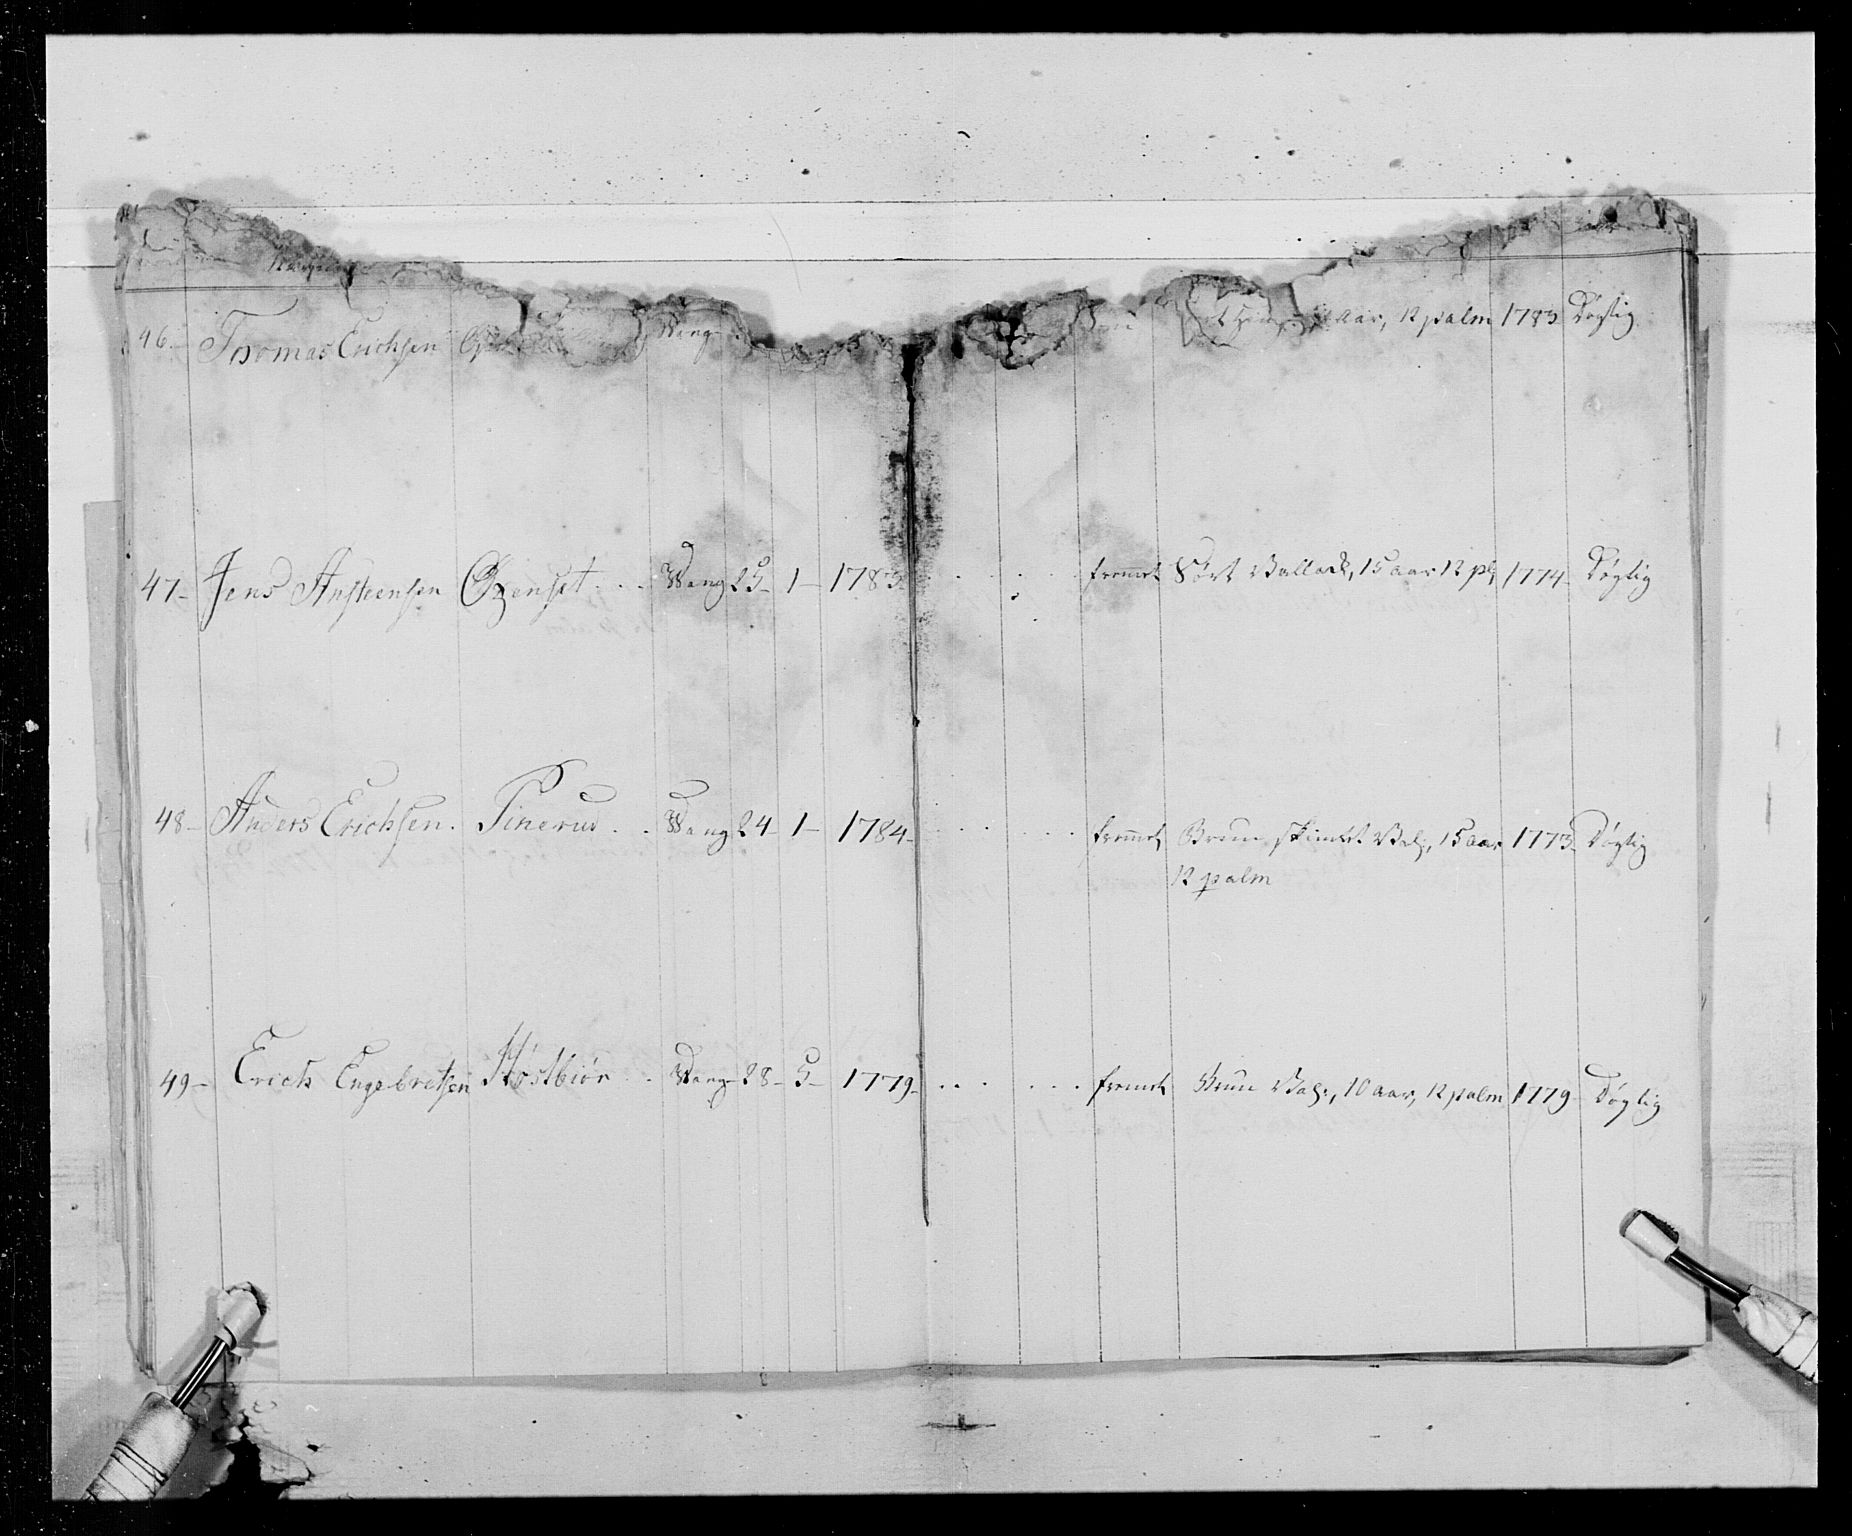 46. Thomas Erichsen Wang aar, 12 palm 1783 Døgtig
47 - Jens Ansteensen Openset . . . Wang 25 - 1 - 1783 - . . . . fremt Sort Vallack, 15 aar 12 pl: 1774 - Døgtig
48 - Anders Erichsen. Finerud . . Wang 24 - 1 - 1784 - . . . . . fremt Brun skimlet Val:, 15 aar 1773 - Døgtig
12 palm
49 - Erich Engebretsen Høstbiør . . Wang - 28 - 5 - 1779 - . . . . . . fremt Brun Val:, 10 aar, 12 palm 1779 - Døgtig